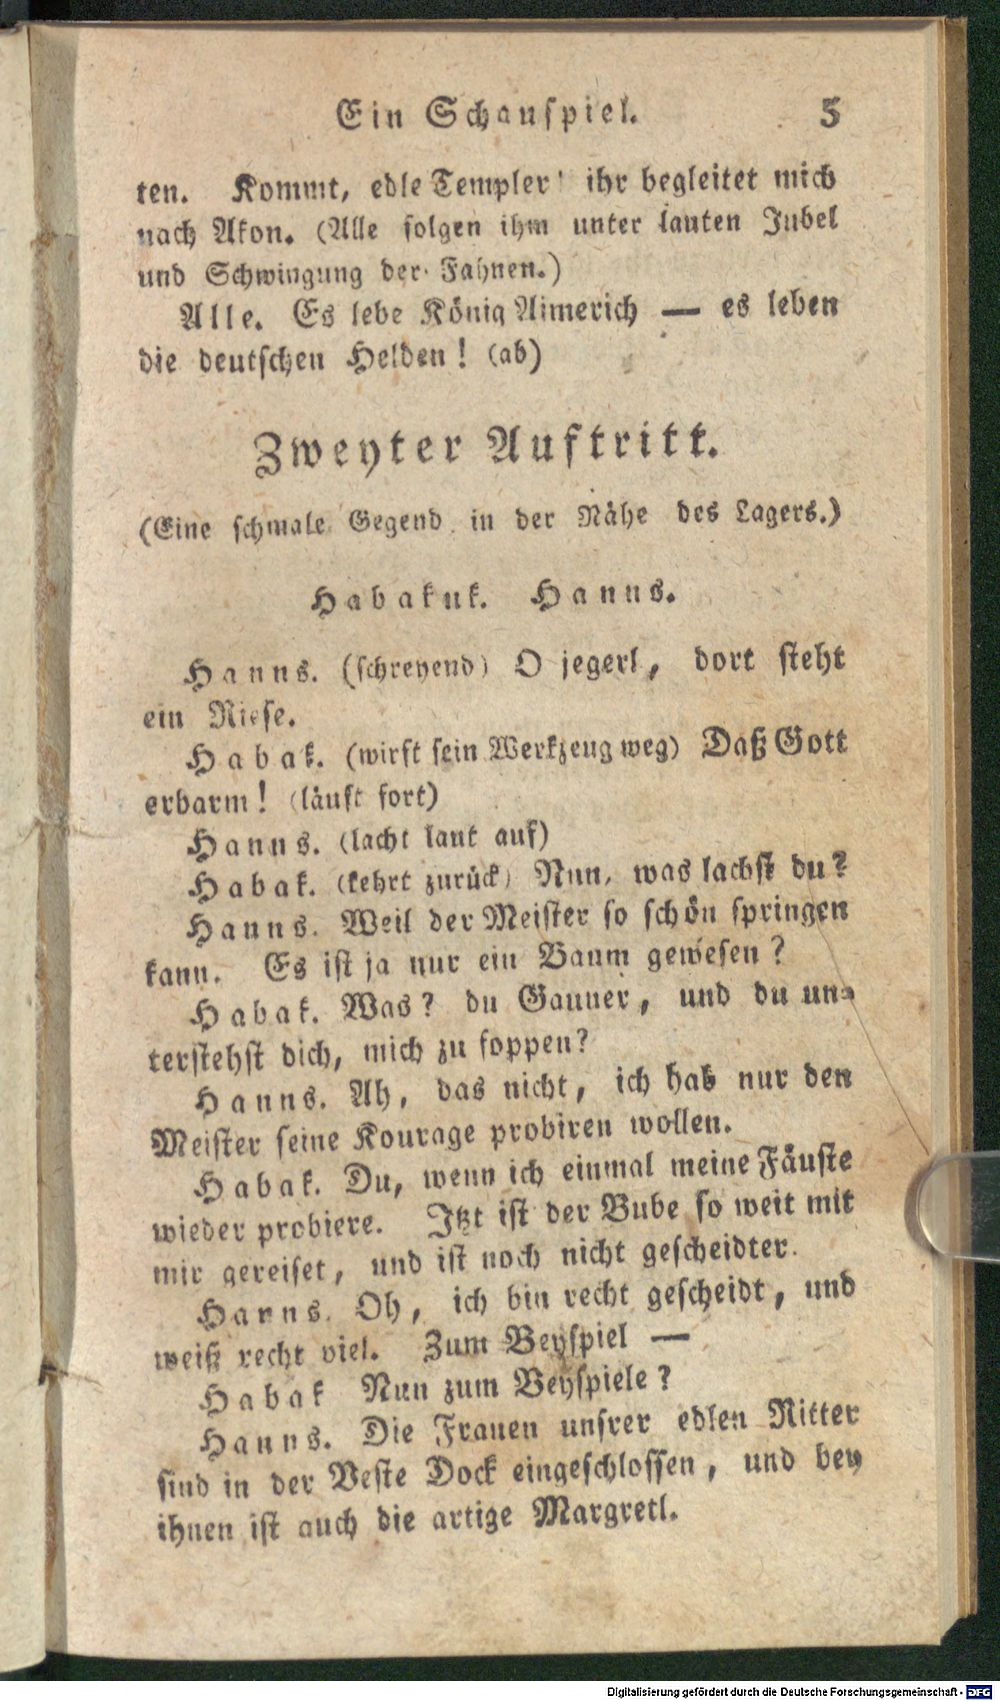 Ein Schauspiel. 5
ten. Kommt, edle Templer! ihr begleitet mich
nach Akon. (Alle folgen ihm unter lauten Jubel
und Schwingung der Fahnen.)
Alle. Es lebe König Aimerich — es leben
die deutschen Helden! (ab)
Zweyter Auftritt.
(Eine schmale Gegend in der Nähe des Lagers.)
Habakuk. Hanns.
Hanns. (schreyend) O jegerl, dort steht
ein Riese.
Habak. (wirft sein Werkzeug weg) Daß Gott
erbarm! (läuft fort)
Hanns. (lacht laut auf)
Habak. (kehrt zurück) Nun, was lachst du?
Hanns. Weil der Meister so schön springen
kann. Es ist ja nur ein Baum gewesen?
Habak. Was? du Gauner, und du un-
terstehst dich, mich zu foppen?
Hanns. Ah, das nicht, ich hab nur den
Meister seine Kourage probiren wollen.
Habak. Du, wenn ich einmal meine Fäuste
wieder probiere. Itzt ist der Bube so weit mit
mir gereiset, und ist noch nicht gescheidter.
Hanns. Oh, ich bin recht gescheidt, und
weiß recht viel. Zum Beyspiel —
Habak Nun zum Beyspiele?
Hanns. Die Frauen unsrer edlen Ritter
sind in der Veste Dock eingeschlossen, und bey
ihnen ist auch die artige Margretl.
Digitalisierung gefördert durch die Deutsche Forschungsgemeinschaft - DFG